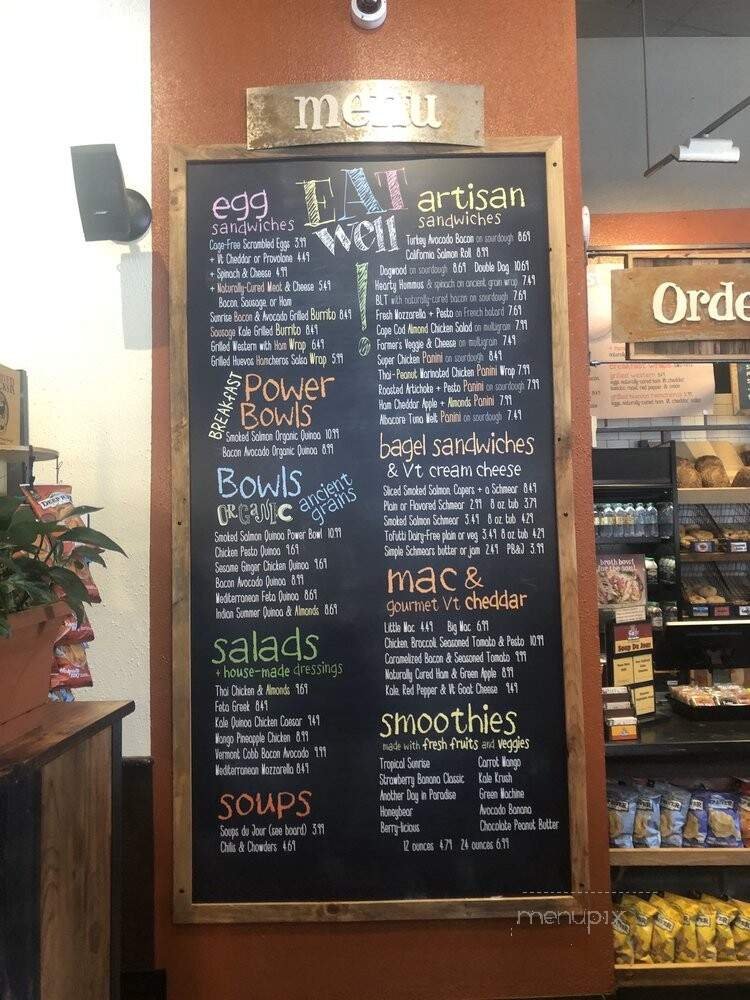 menu
EAT
well
!
egg
sandwiches
Cage-Free Scrambled Eggs 3.99
+ Vt Cheddar or Provolone 4.49
+ Spinach & Cheese 4.99
+ Naturally-Cured Meat & Cheese 5.49
Bacon, Sausage, or Ham
Sunrise Bacon & Avocado Grilled Burrito 8.49
Sausage Kale Grilled Burrito 8.49
Grilled Western with Ham Wrap 6.49
Grilled Huevos Hamcheros Salsa Wrap 5.99
BREAKFAST
Power
Bowls
Smoked Salmon Organic Quinoa 10.99
Bacon Avocado Organic Quinoa 8.99
Bowls
ORGANIC
ancient
grains
Smoked Salmon Quinoa Power Bowl 10.99
Chicken Pesto Quinoa 9.69
Sesame Ginger Chicken Quinoa 9.69
Bacon Avocado Quinoa 8.99
Mediterranean Feta Quinoa 8.69
Indian Summer Quinoa & Almonds 8.69
salads
+ house-made dressings
Thai Chicken & Almonds 9.69
Feta Greek 8.49
Kale Quinoa Chicken Caesar 9.49
Mango Pineapple Chicken 8.99
Vermont Cobb Bacon Avocado 9.99
Mediterranean Mozzarella 8.49
soups
Soups du Jour (see board) 3.99
Chilis & Chowders 4.69
artisan
sandwiches
Turkey Avocado Bacon on sourdough 8.69
California Salmon Roll 8.99
Dagwood on sourdough 8.69 Double Dag 10.69
Hearty Hummus & spinach on ancient grain wrap 7.49
BLT with naturally-cured bacon on sourdough 7.69
Fresh Mozzarella + Pesto on French batard 7.69
Cape Cod Almond Chicken Salad on multigrain 7.99
Farmer's Veggie & Cheese on multigrain 7.49
Super Chicken Panini on sourdough 8.49
Thai-Peanut Marinated Chicken Panini Wrap 7.99
Roasted Artichoke + Pesto Panini on sourdough 7.99
Ham Cheddar Apple + Almonds Panini 7.99
Albacore Tuna Melt Panini on sourdough 7.49
bagel sandwiches
& Vt cream cheese
Sliced Smoked Salmon, Capers + a Schmear 8.49
Plain or Flavored Schmear 2.99 8 oz tub 3.79
Smoked Salmon Schmear 3.49 8 oz tub 4.29
Tofutti Dairy-Free plain or veg 3.49 8 oz tub 4.29
Simple Schmears butter or jam 2.49 PB&J 3.99
mac &
gourmet Vt cheddar
Little Mac 4.49 Big Mac 6.99
Chicken, Broccoli, Seasoned Tomato & Pesto 10.99
Caramelized Bacon & Seasoned Tomato 9.99
Naturally Cured Ham & Green Apple 8.99
Kale Red Pepper & Vt Goat Cheese 9.49
smoothies
made with fresh fruits and veggies
Tropical Sunrise Carrot Mango
Strawberry Banana Classic Kale Krush
Another Day in Paradise Green Machine
Honeybear Avocado Banana
Berry-licious Chocolate Peanut Butter
12 ounces 4.79 24 ounces 6.99
Orde
grilled western
Soup Du Jour
broth bowl
for the soul
menupix